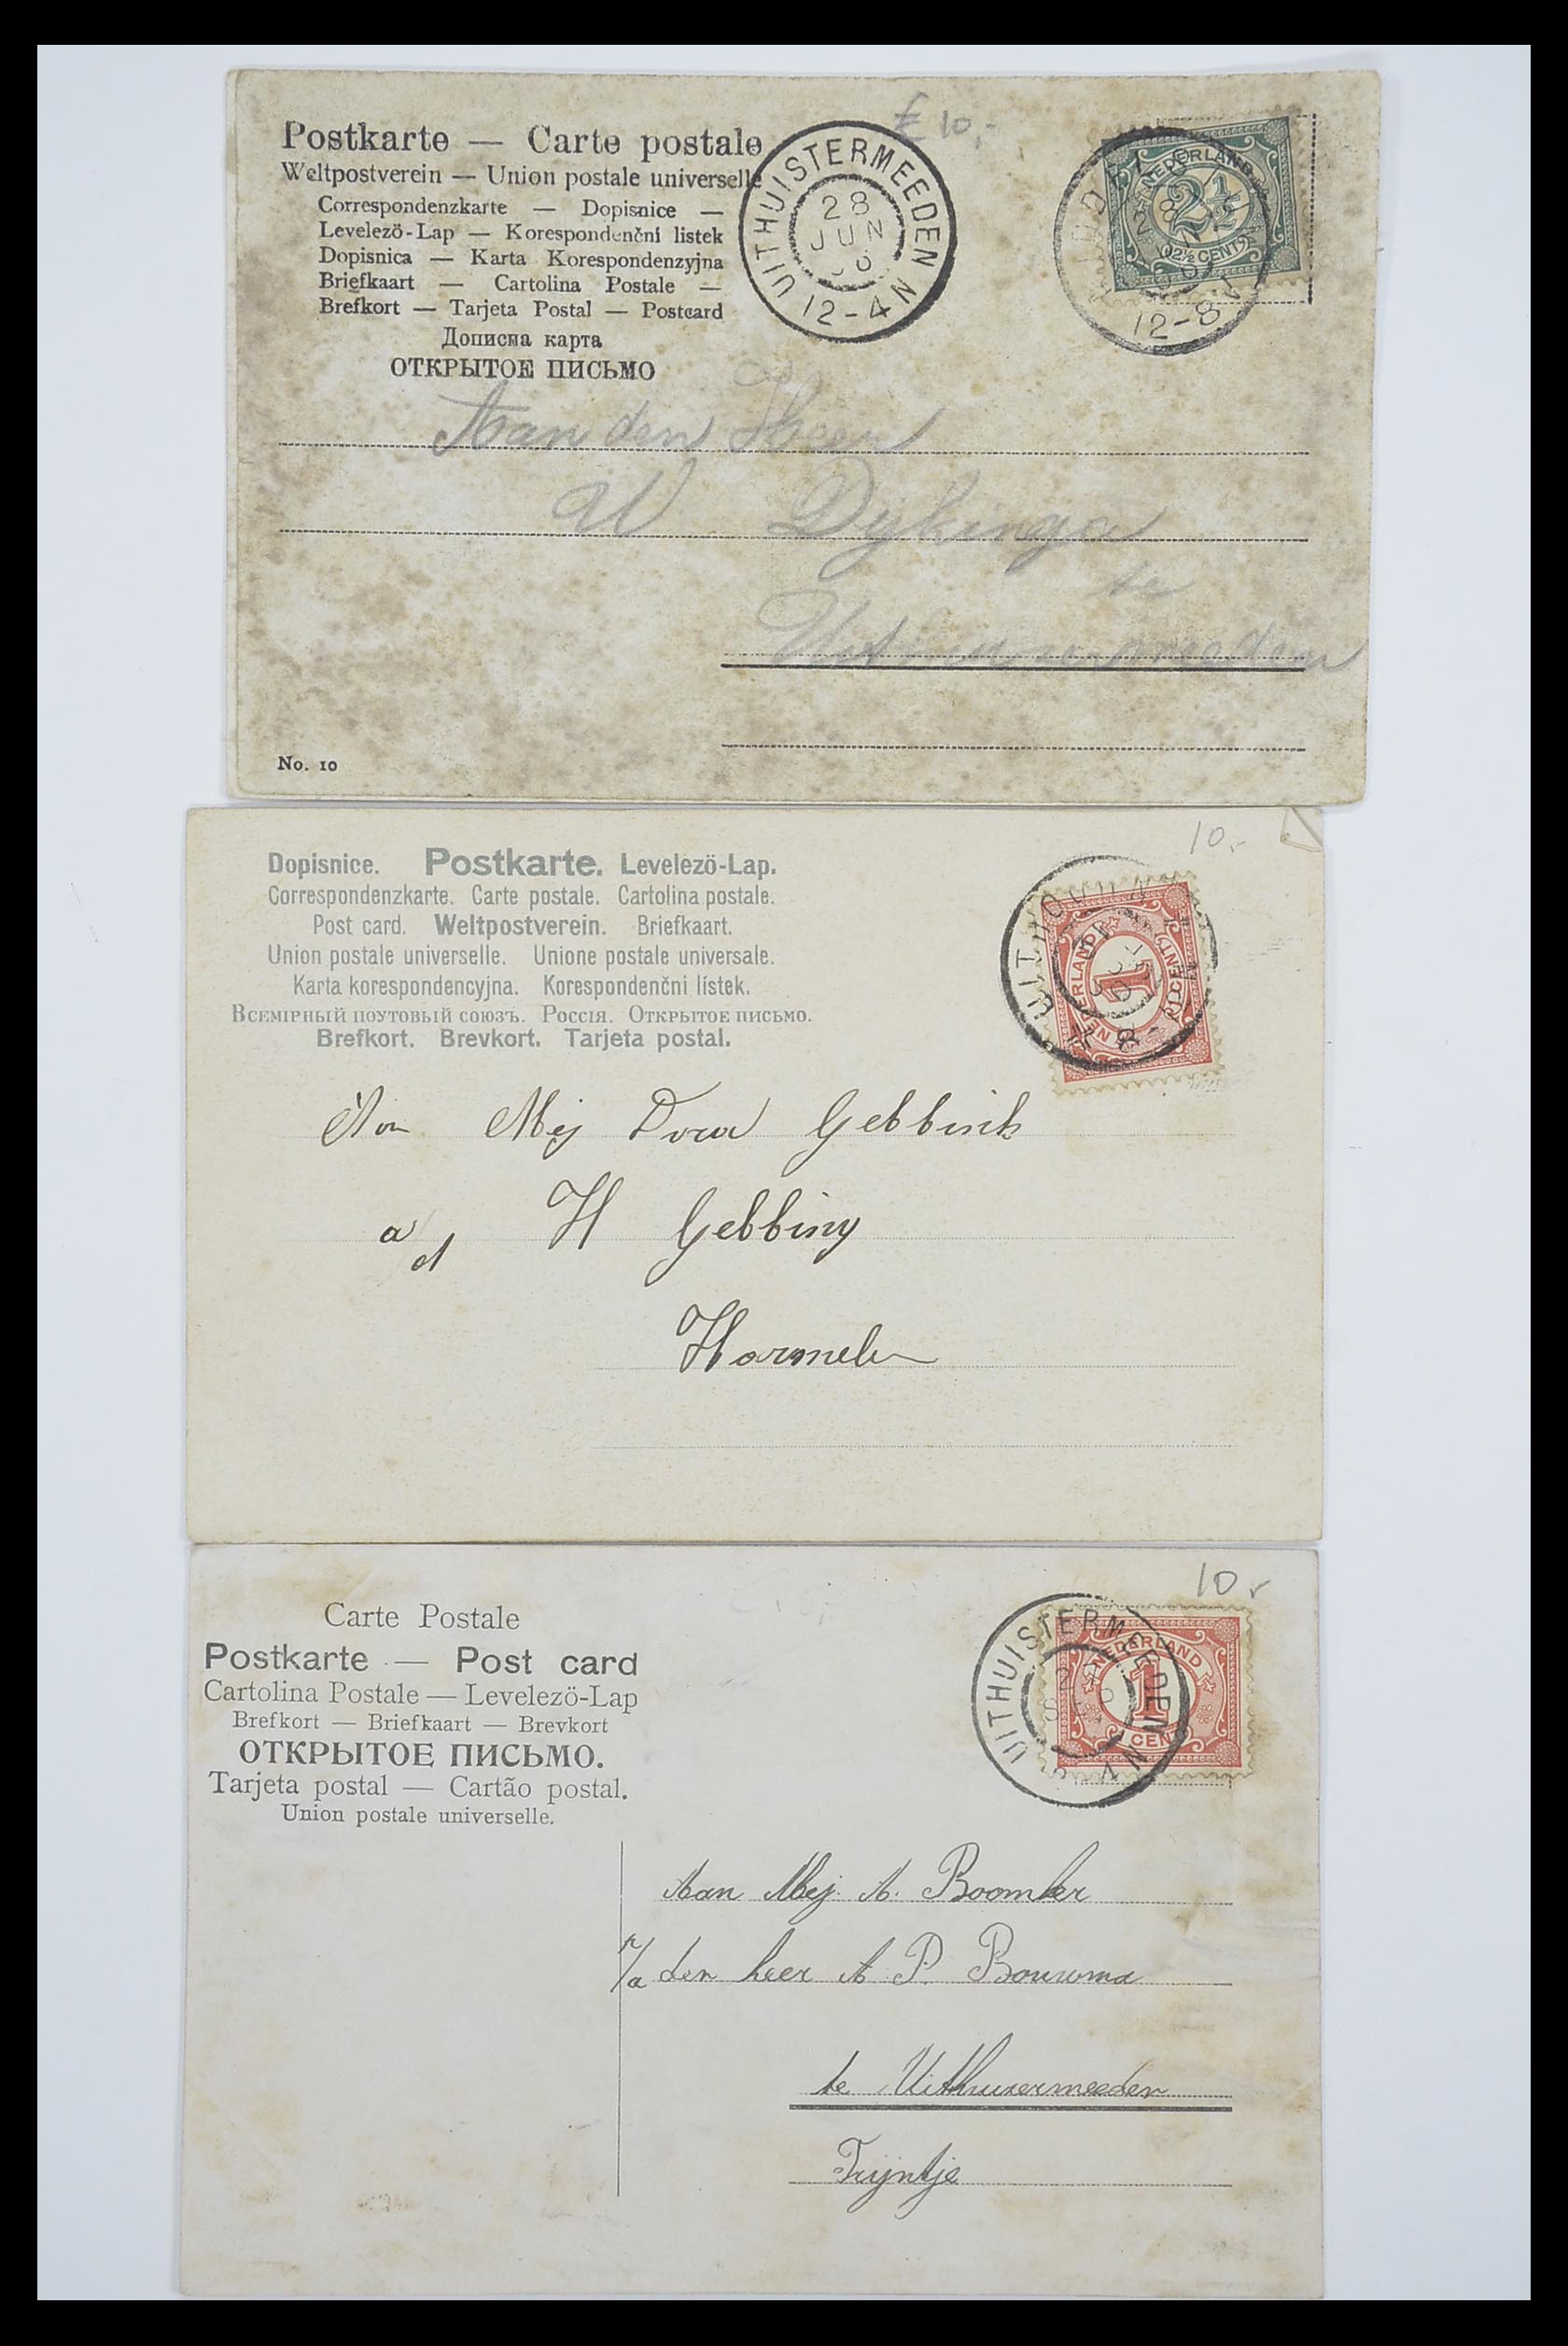 £ 10,-
Postkarte — Carte postale
Weltpostverein — Union postale universelle
Correspondenzkarte — Dopisnice —
Levelező-Lap — Korespondenční listek
Dopisnica — Karta Korespondenzyjna
Briefkaart — Cartolina Postale —
Brefkort — Tarjeta Postal — Postcard
Дописна карта
ОТКРЫТОЕ ПИСЬМО
UITHUISTERMEEDEN
28
JUN
12-4N
NEDERLAND
2½
2½ CENT
12-8
Aan den Heer
W Dijkinga
te
No. 10
10,-
Dopisnice. Postkarte. Levelező-Lap.
Correspondenzkarte. Carte postale. Cartolina postale.
Post card. Weltpostverein. Briefkaart.
Union postale universelle. Unione postale universale.
Karta korespondencyjna. Korespondenčni lístek.
Всемірный поутовый союзъ. Россія. Открытое письмо.
Brefkort. Brevkort. Tarjeta postal.
UITHOORN
NEDERLAND
1
CENT
Mej Dora Gebbink
H Gebbing
Harmelen
10,-
Carte Postale
Postkarte — Post card
Cartolina Postale — Levelező-Lap
Brefkort — Briefkaart — Brevkort
ОТКРЫТОЕ ПИСЬМО.
Tarjeta postal — Cartão postal.
Union postale universelle.
UITHUISTERMEEDEN
NEDERLAND
1
CENT
Aan Mej. A. Boomker
p/a den heer A P. Bouwma
te Uithuizermeeden
Trijntje